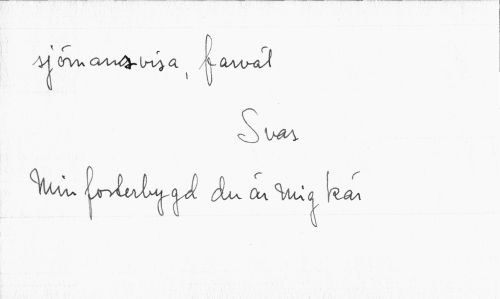 sjömansvisa, farväl
Svas
Min fosterbygd du är mig kär